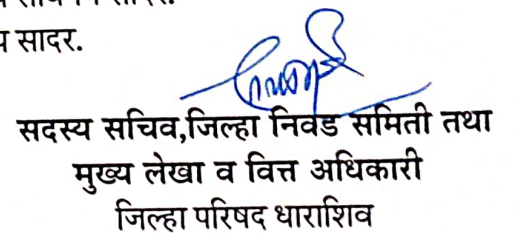 य सादर.
सदस्य सचिव,जिल्हा निवड समिती तथा
मुख्य लेखा व वित्त अधिकारी
जिल्हा परिषद धाराशिव